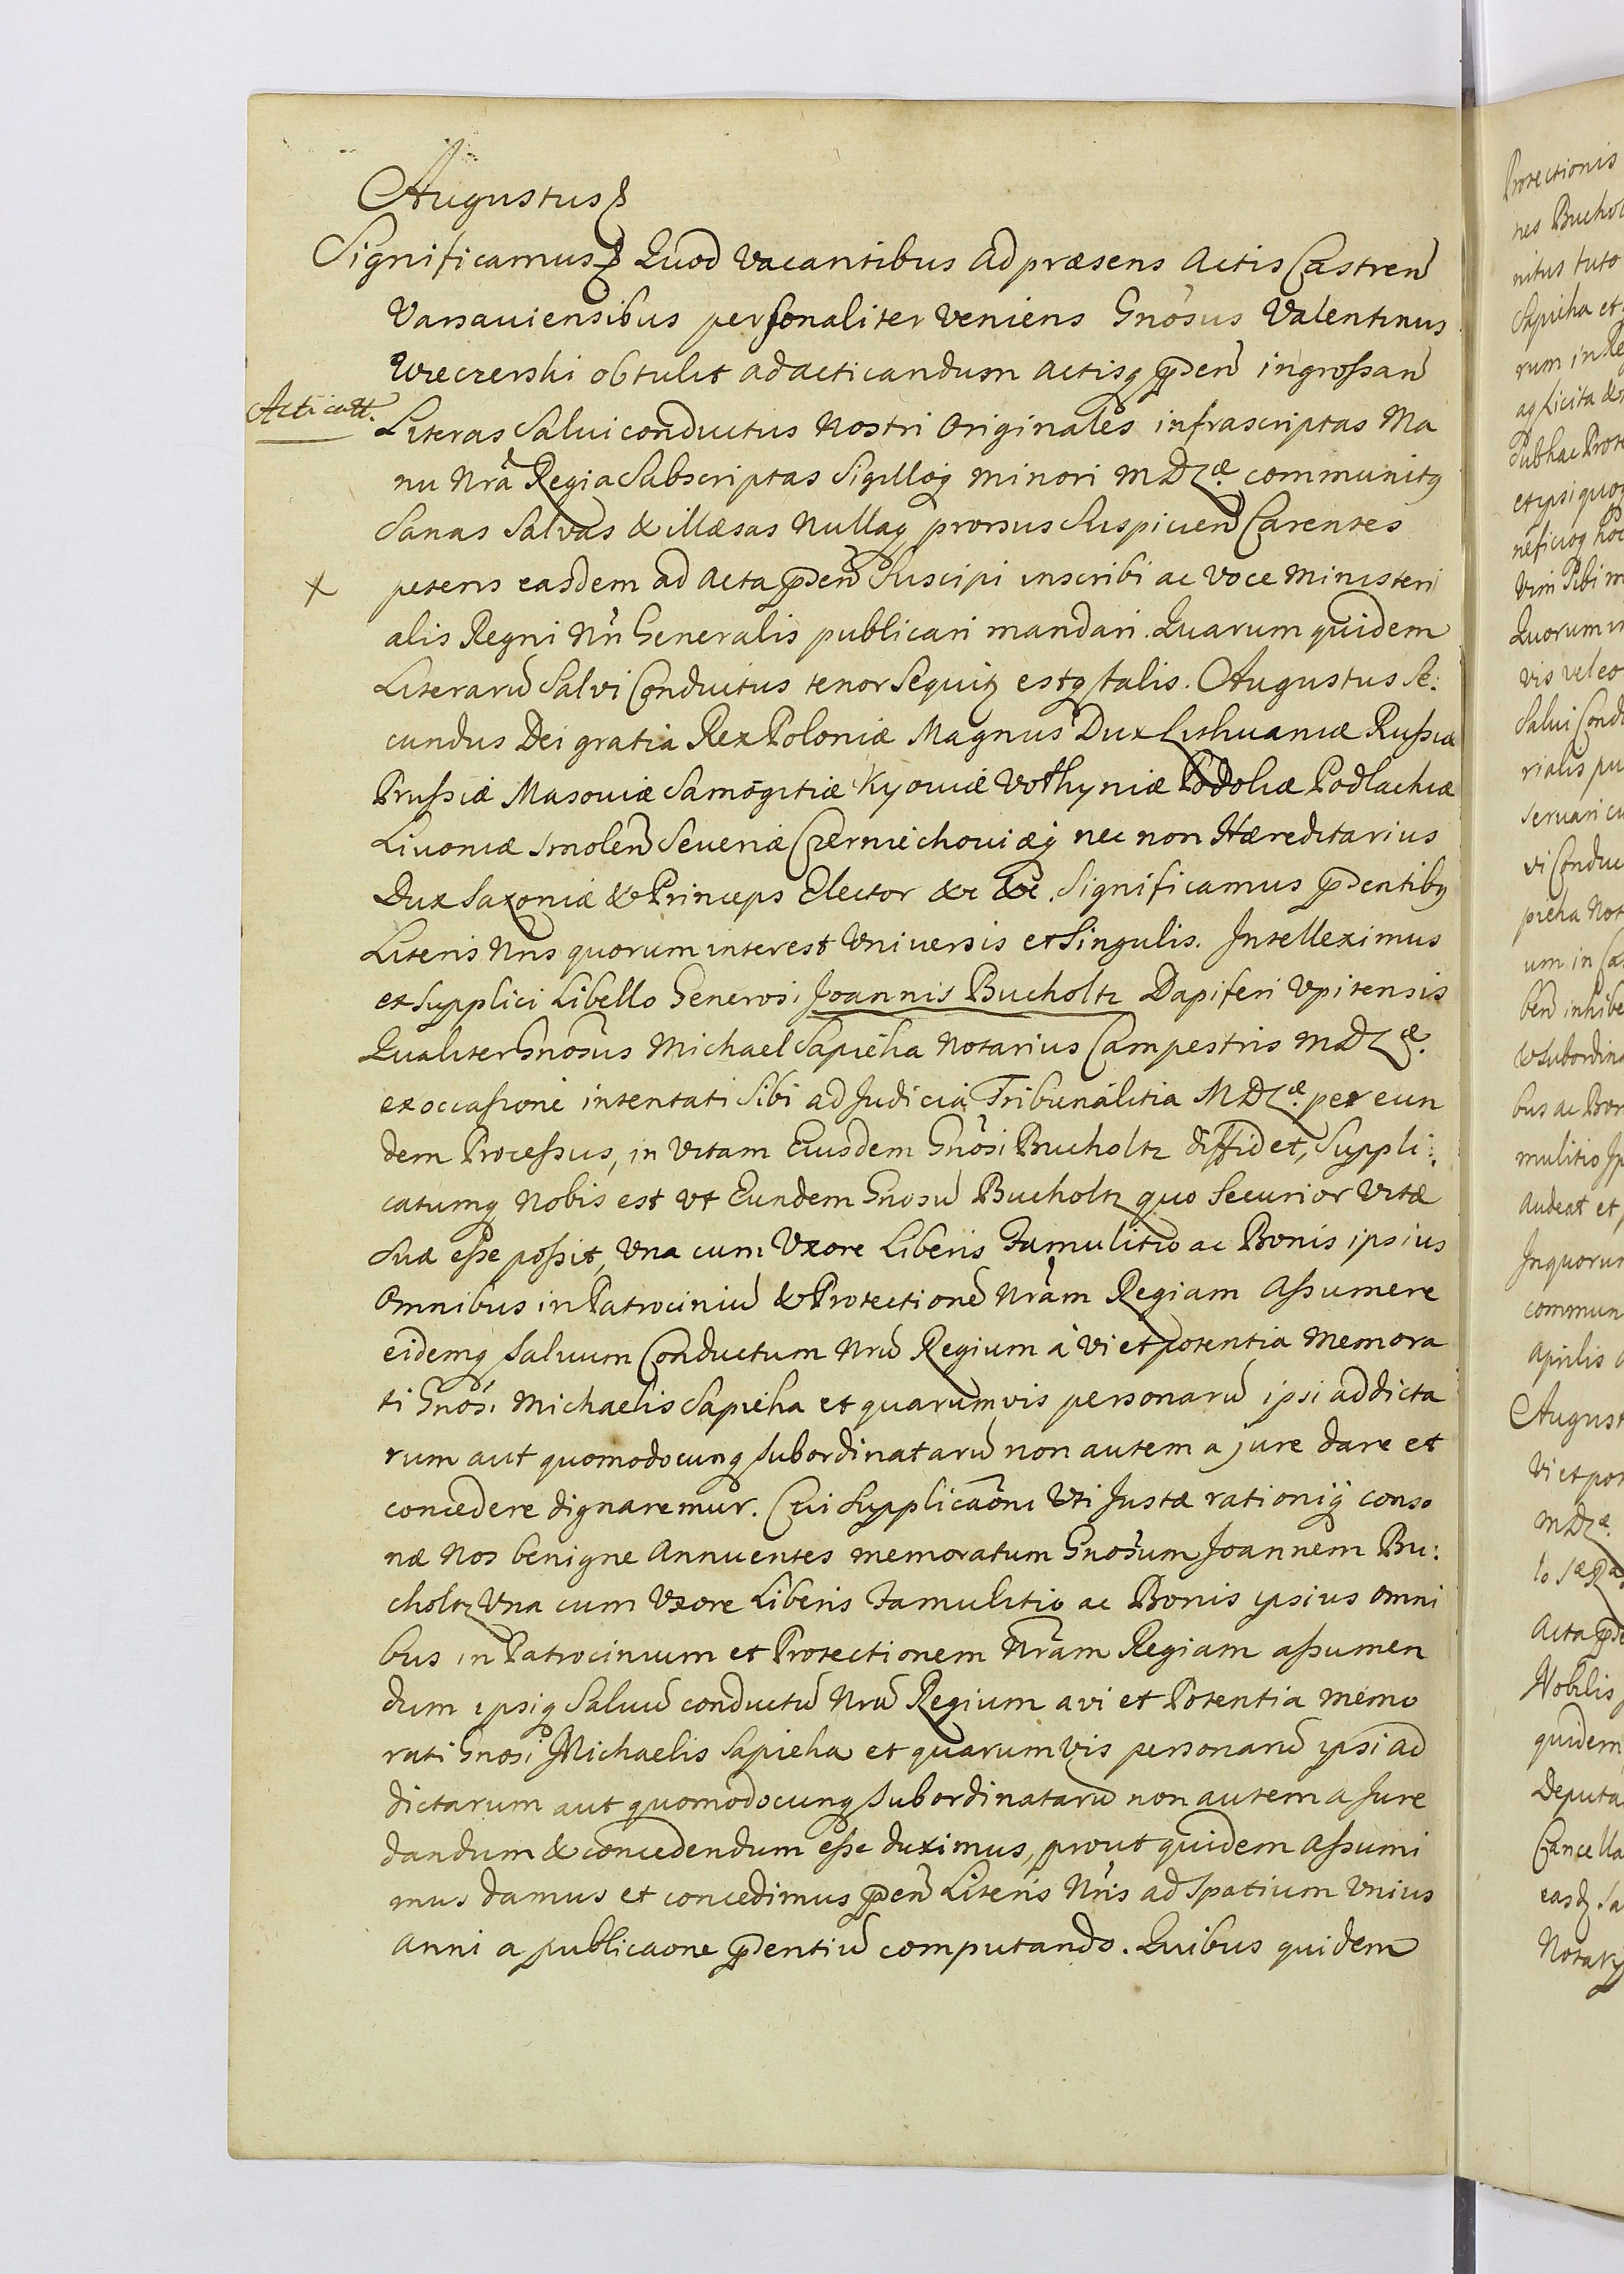 Augustus
Significamus Quod Vacantibus ad præsens Actis Castren
Varsauiensibus personaliter veniens Gnosus Valentinus
Wieczerski obtulit ad acticandum actisq pden ingrossan
Acticatt.
Literas Salui conductus Nostri Originales infrascriptas Ma
nu Nra Regia Subscriptas Sigilloq minori MDLæ communitq
Sanas Salvas & illæsas Nullaq prorsus Suspicuen Carentes
x petens easdem ad Acta pden Suscipi inscribi ac Voce Ministeri
alis Regni Nri Generalis publicari mandari. Quarum quidem
Literarū Salvi Conductus tenor Sequitz estq talis. Augustus Se:
cundus Dei gratia Rex Poloniæ Magnus Dux Lithuaniæ Russiæ
Prussiæ Masouiæ Samogitiæ Kyouiæ Volhyniæ Podoliæ Podlachiæ
Livoniæ Smolen Seueriæ Czerniechouiæq nec non Hæreditarius
Dux Saxoniæ & Princeps Elector &c &c. Significamus pdentibq
Literis Nris quorum interest Vniuersis et Singulis. Intelleximus
ex Supplici Libello Generosi Joannis Bucholtz Dapiferi Vpitensis
Qualiter Gnosus Michael Sapieha Notarius Campestris MDLæ.
ex occasione intentati Sibi ad Judicia Tribunalitia MDLæ. per eun
dem Processus, in Vitam Eiusdem Gnosi Bucholtz diffidet, Suppli:
catumq Nobis est vt Eundem Gnosū Bucholtz quo Securior Vitæ
Suæ esse possit, Vna cum Vxore Liberis Famulitio ac Bonis ipsius
Omnibus in Patrociniū & Protectionē Nram Regiam Assumere
eidemq Saluum Conductum Nrū Regium à vi et potentia Memora
ti Gnosi Michaelis Sapieha et quarumvis personarū ipsi addicta
rum aut quomodocunq Subordinatarū non autem a jure dare et
concedere dignaremur. Cui Supplicaoni Vti Justæ rationiq conso
næ Nos benigne Annuentes memoratum Gnosum Joannem Bu:
choltz Vna cum Vxore Liberis Famulitio ac Bonis ipsius Omni
bus in Patrocinium et Protectionem Nram Regiam assumen
dum ipsiq Saluū conductū Nrū Regium a vi et Potentia memo
rati Gnosi Michaelis Sapieha et quarumvis personarū ipsi ad
dictarum aut quomodocunq Subordinatarū non autem a Jure
dandum & concedendum esse duximus, prout quidem Assumi
mus damus et concedimus pden Literis Nris ad Spatium Vnius
Anni a publicaone pdentiū computando. Quibus quidem
Protectionis
nes Buchol
nitus tuto
Sapieha et
rum in Re
aq Licita
Sub hac Prote
et ipsi quoq
neficioq hoc
Vim Sibi
Quorum
vis vel eo
Salui Cond
rialis pu
seruari cu
vi Conduc
pieha Not
um in Ca
ben inhibe
& Subordina
bus ac Bon
mulitio Ip
Audeat et
In quorum
commun
Aprilis
August
Vi et pot
MDLæ.
Acta pde
Nobilis
quidem
Deputa
Cancella
easd Sa
Notary